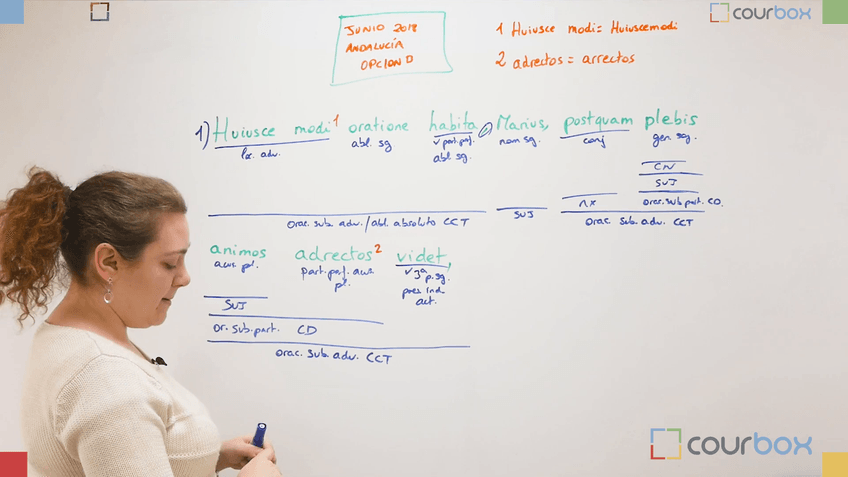 courbox
JUNIO 2018
ANDALUCÍA
OPCION
1 Huiusce modi = Huiuscemodi
2 adrectos = arrectos
1) Huiusce modi¹ oratione habita, Marius, postquam plebis
loc. adv. abl. sg v part. perf. nom sg. conj gen sg.
abl. sg.
CN
SUJ
nx orac. sub. part. CD.
orac. sub. adv. / abl. absoluto CCT SUJ orac. sub. adv. CCT
animos adrectos² videt,
acus pl. part. perf. acus v 3ª p. sg.
pl. pres ind
act.
SUJ
or. sub. part. CD
orac. sub. adv. CCT
courbox